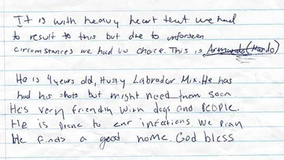 It is with heavy heart that we had
to result to this but due to unforseen
circumstances we had no choice. This is Armando (Mando)
He is 4 years old, Husky Labrador Mix. He has
had his shots but might need them soon
He's very friendly with dogs and PEOPLE.
He is prone to ear infections we pray
He finds a good home. God bless